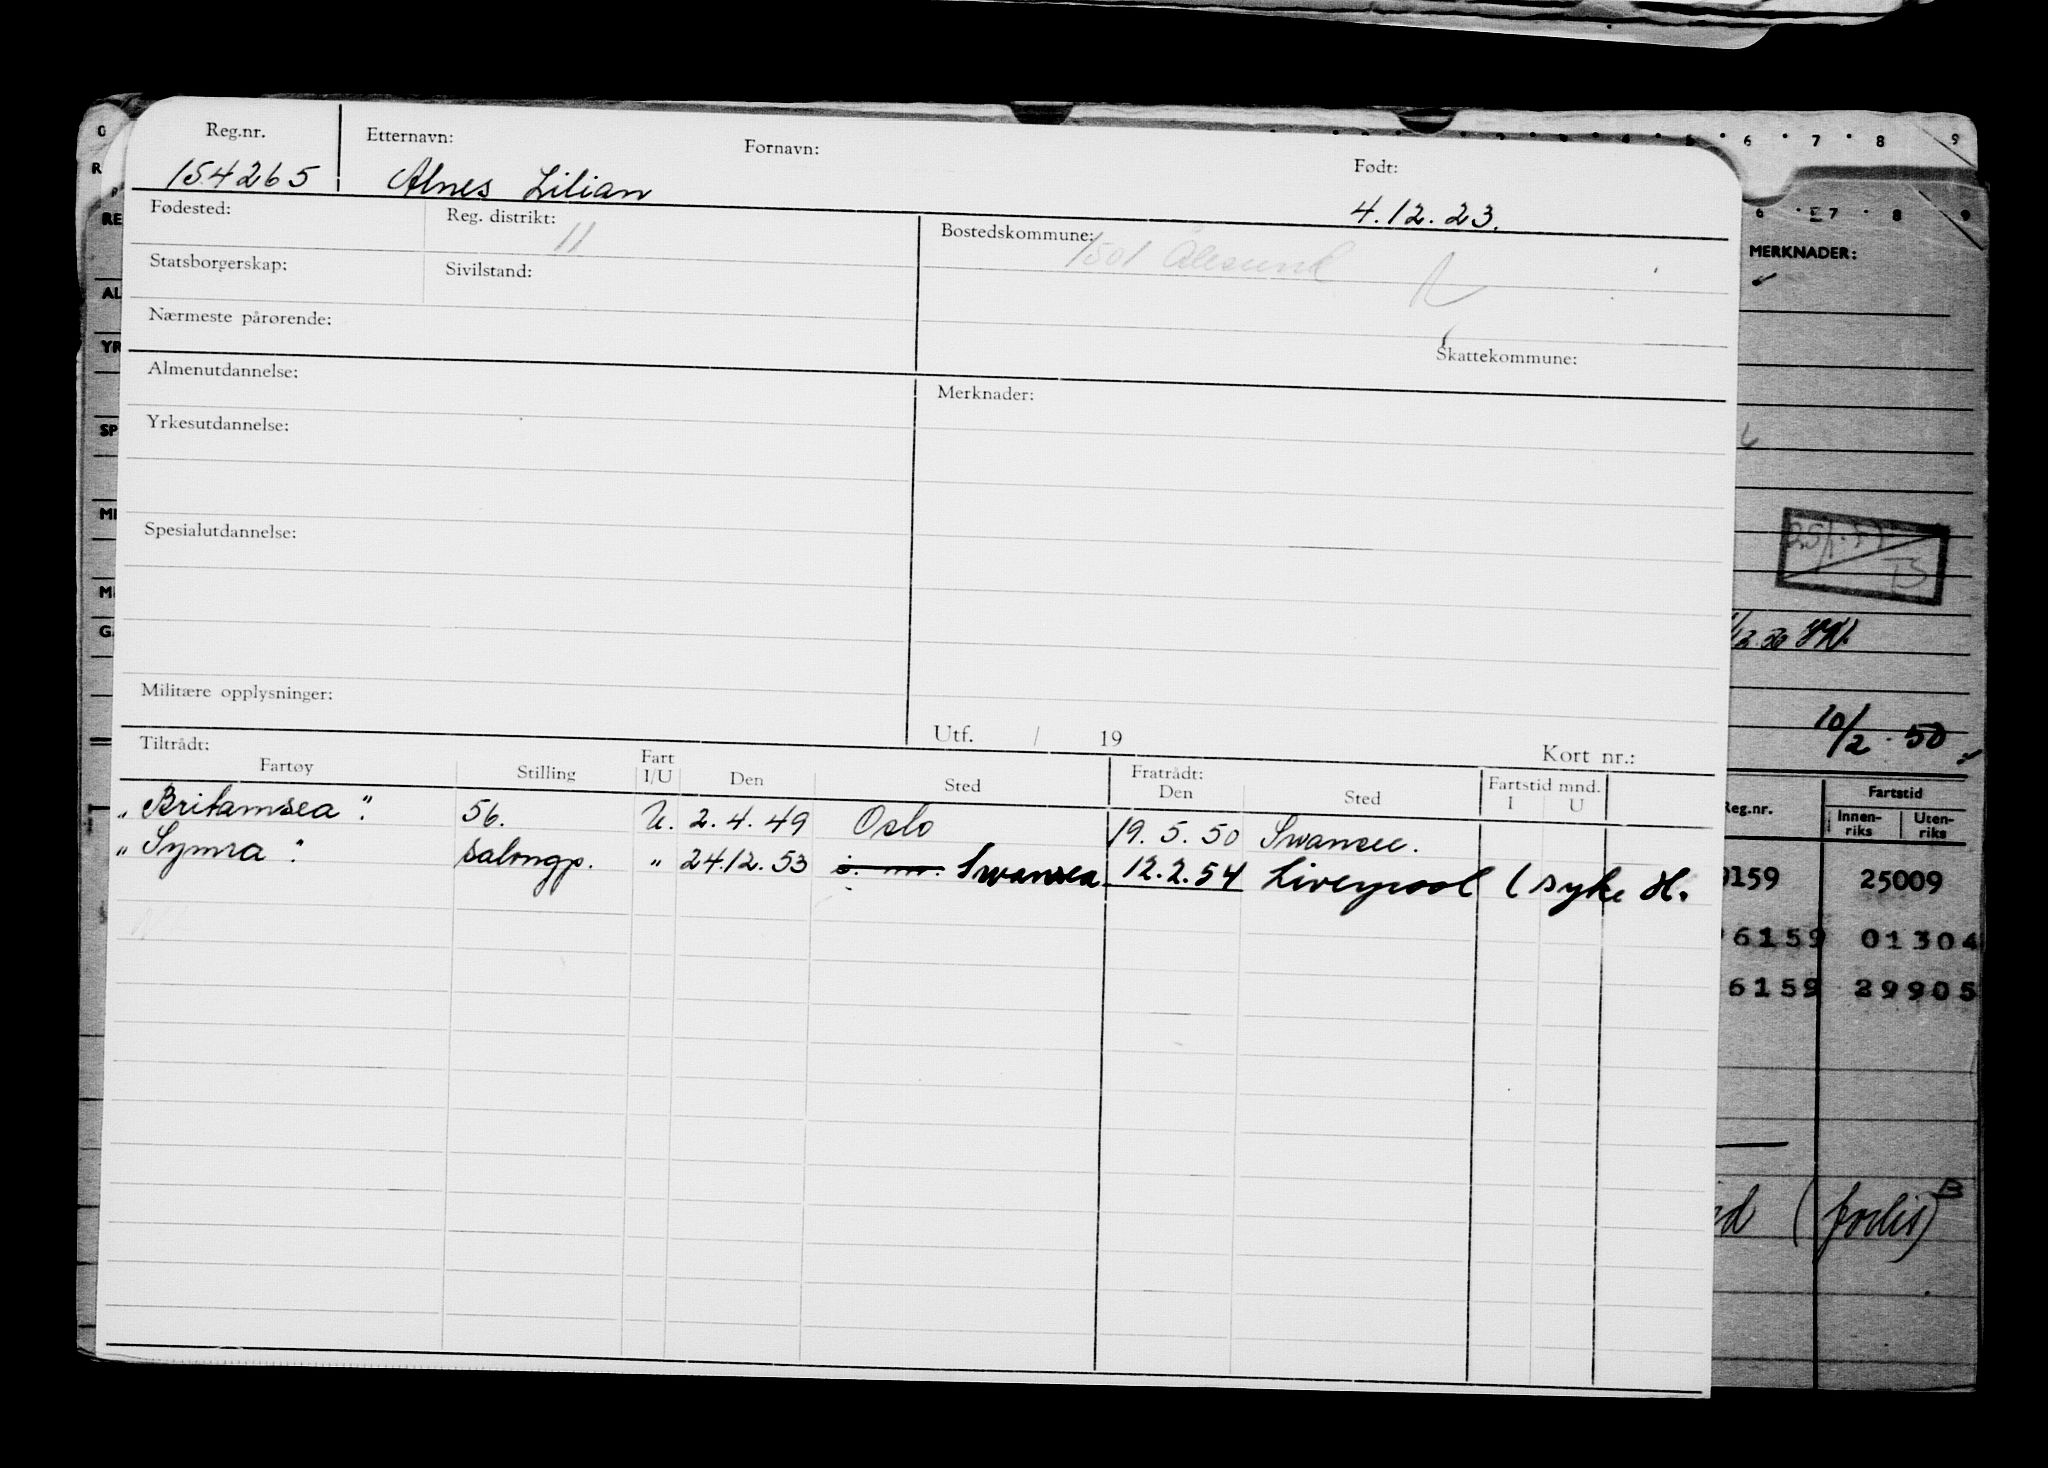 Reg.nr. Etternavn: Fornavn: Født:
154265 Alnes Lilian 4.12.23.
Fødested: Reg. distrikt: 11 Bostedskommune: 1501 Ålesund
Statsborgerskap: Sivilstand:
Nærmeste pårørende: Skattekommune:
Almenutdannelse: Merknader:
Yrkesutdannelse:
Spesialutdannelse:
Militære opplysninger:
Utf. / 19 Kort nr.:
Tiltrådt: Fratrådt: Fartstid mnd.
Fartøy Stilling Fart I/U Den Sted Den Sted I U
„Britamsea" 56. U. 2.4.49 Oslo 19.5.50 Swansee.
„Symra" salongp. " 24.12.53 Swansea 12.2.54 Liverpool (syke H.
6 7 8 9
6 7 8 9
MERKNADER:
10/2.50
Reg.nr. Fartstid
Innen-riks Uten-riks
159 25009
6159 01304
6159 29905
B
RE
AL
YR
SP